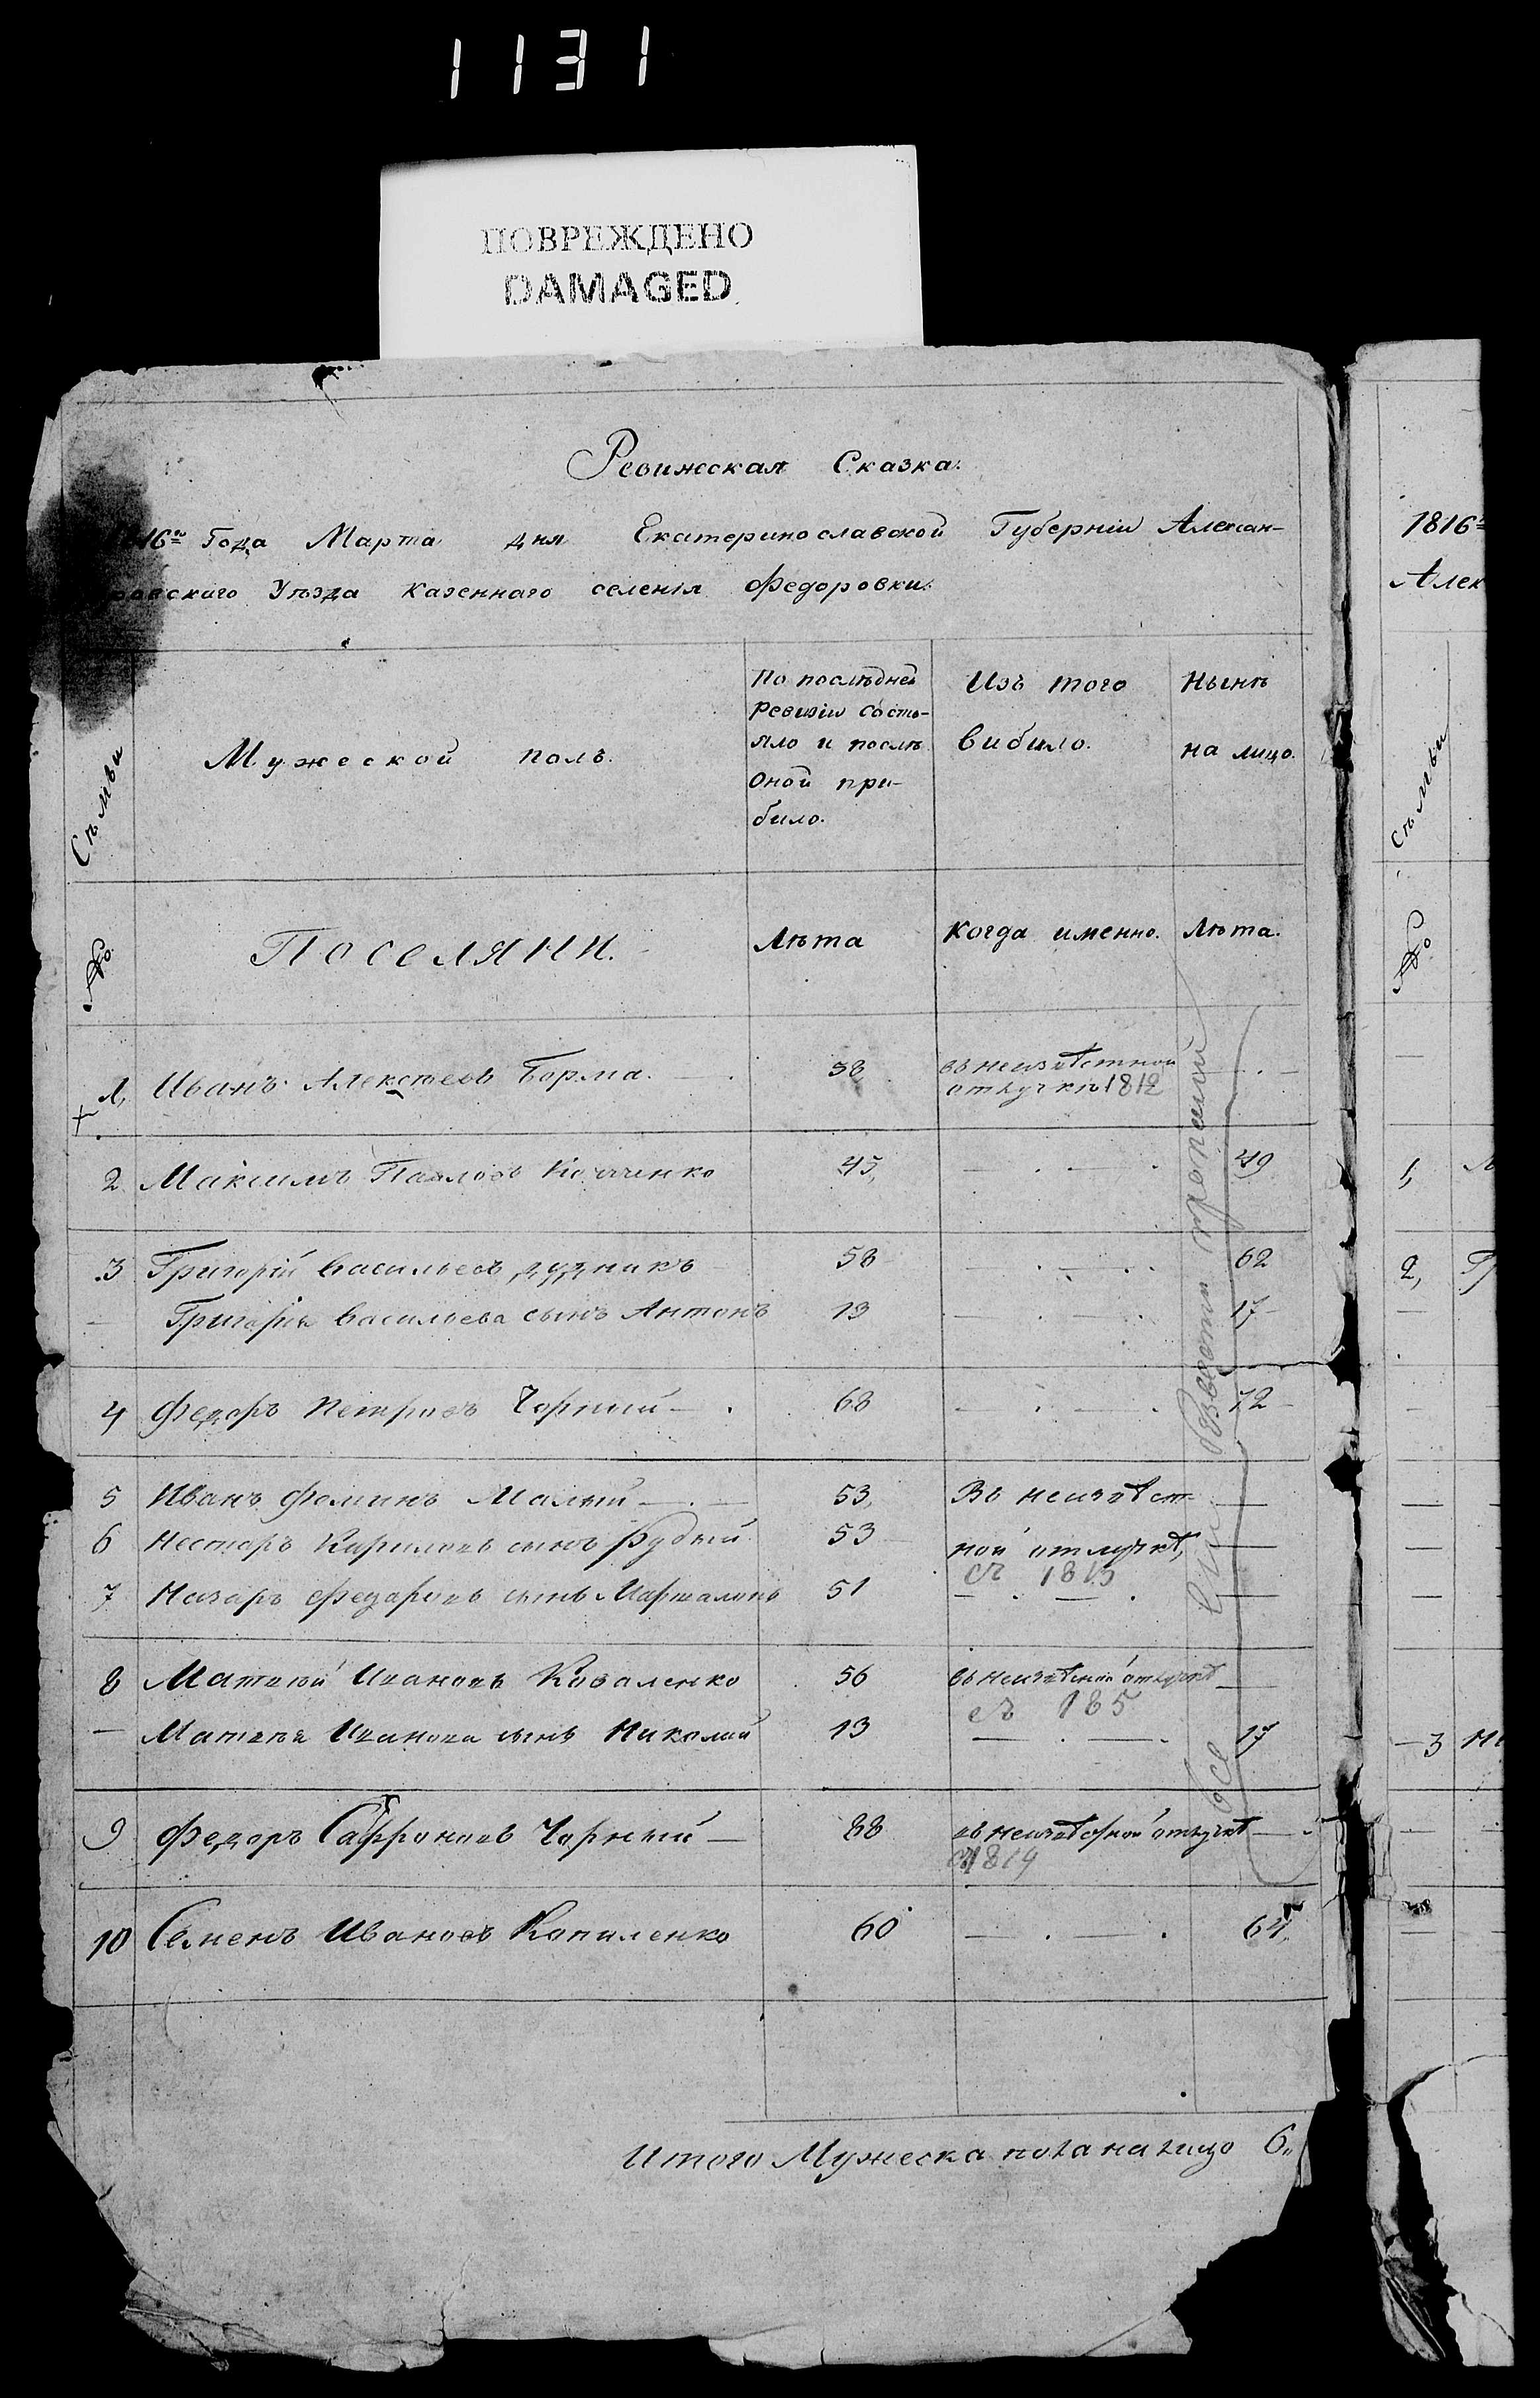 1131
ПОВРЕЖДЕНО
DAMAGED
Ревижская Сказка.
16го Года Марта дня Екатеринославской Губерніи Алексан-
ровскаго Уѣзда казеннаго селенія Федоровки.
Семьи
Мужеской полъ.
По послѣдней
Ревизіи состо-
яло и послѣ
Оной при-
било.
Изъ того
вибило.
Нынѣ
на лицо.
№
ПОСЕЛЯНИ.
Лѣта
Когда именно.
Лѣта.
1, Иванъ Алексѣевъ Борма. 58 въ неизвѣстной
отлучкѣ 1812
2 Максимъ Павловъ 45, 49
3 Григорій Васильевъ Дудникъ 58 62
Григорія Васильева сынъ Антонъ 13 17
4 Федоръ Петровъ Чорний 68 72
5 Иванъ Фоминъ Малый 53, Въ неизвѣст-
6 Несторъ Кириловъ сынъ Рудый 53 ной отлучкѣ,
съ 1815
7 Назаръ Федоровъ сынъ 51
8 Матвѣй Ивановъ Коваленко 56 въ неизвѣстной отлучкѣ
съ 185
Матвѣя Иванова сынъ Николай 13 17
9 Федоръ Сафроновъ Чорный 88 въ неизвѣстной отлучкѣ
1814
10 Семенъ Ивановъ Копиленко 60 64
Итого Мужеска пола на лицо 6
1816
Алек
Семьи
№
1,
2,
3